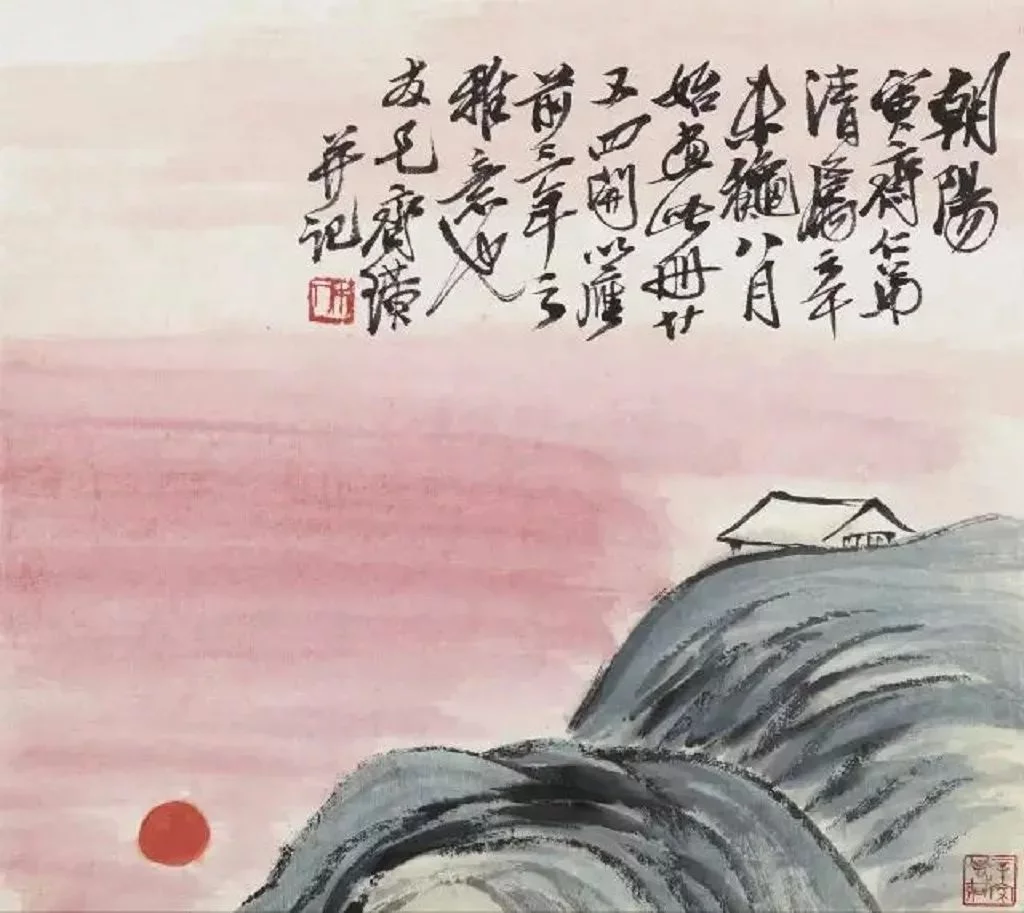 朝陽
寅齋仁弟
清屬辛
未龝八月
始畫此册廿
又四開以應
前三年之
雅意也
友兄齊璜
并記
木人